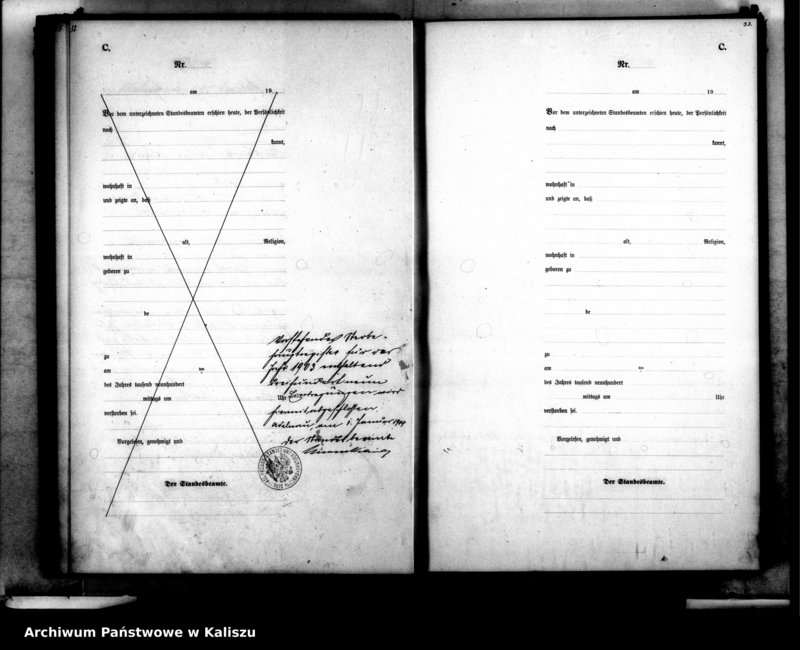 C.
Nr.
am 19
Vor dem unterzeichneten Standesbeamten erschien heute, der Persönlichkeit
nach
kannt,
wohnhaft in
und zeigte an, daß
alt, Religion,
wohnhaft in
geboren zu
de
zu
am um
des Jahres tausend neunhundert
mittags um Uhr
verstorben sei.
Vorgelesen, genehmigt und
Der Standesbeamte.
Vorstehendes Sterbe-
hauptregister für das
Jahr 1903 enthaltend
dreihundert neun
Eintragungen, wird
hiermit abgeschlossen.
Adelnau, am 1. Januar 1904
Der Standesbeamte
33.
C.
Nr.
am 19
Vor dem unterzeichneten Standesbeamten erschien heute, der Persönlichkeit
nach
kannt,
wohnhaft in
und zeigte an, daß
alt, Religion,
wohnhaft in
geboren zu
de
zu
am um
des Jahres tausend neunhundert
mittags um Uhr
verstorben sei.
Vorgelesen, genehmigt und
Der Standesbeamte.
Archiwum Państwowe w Kaliszu